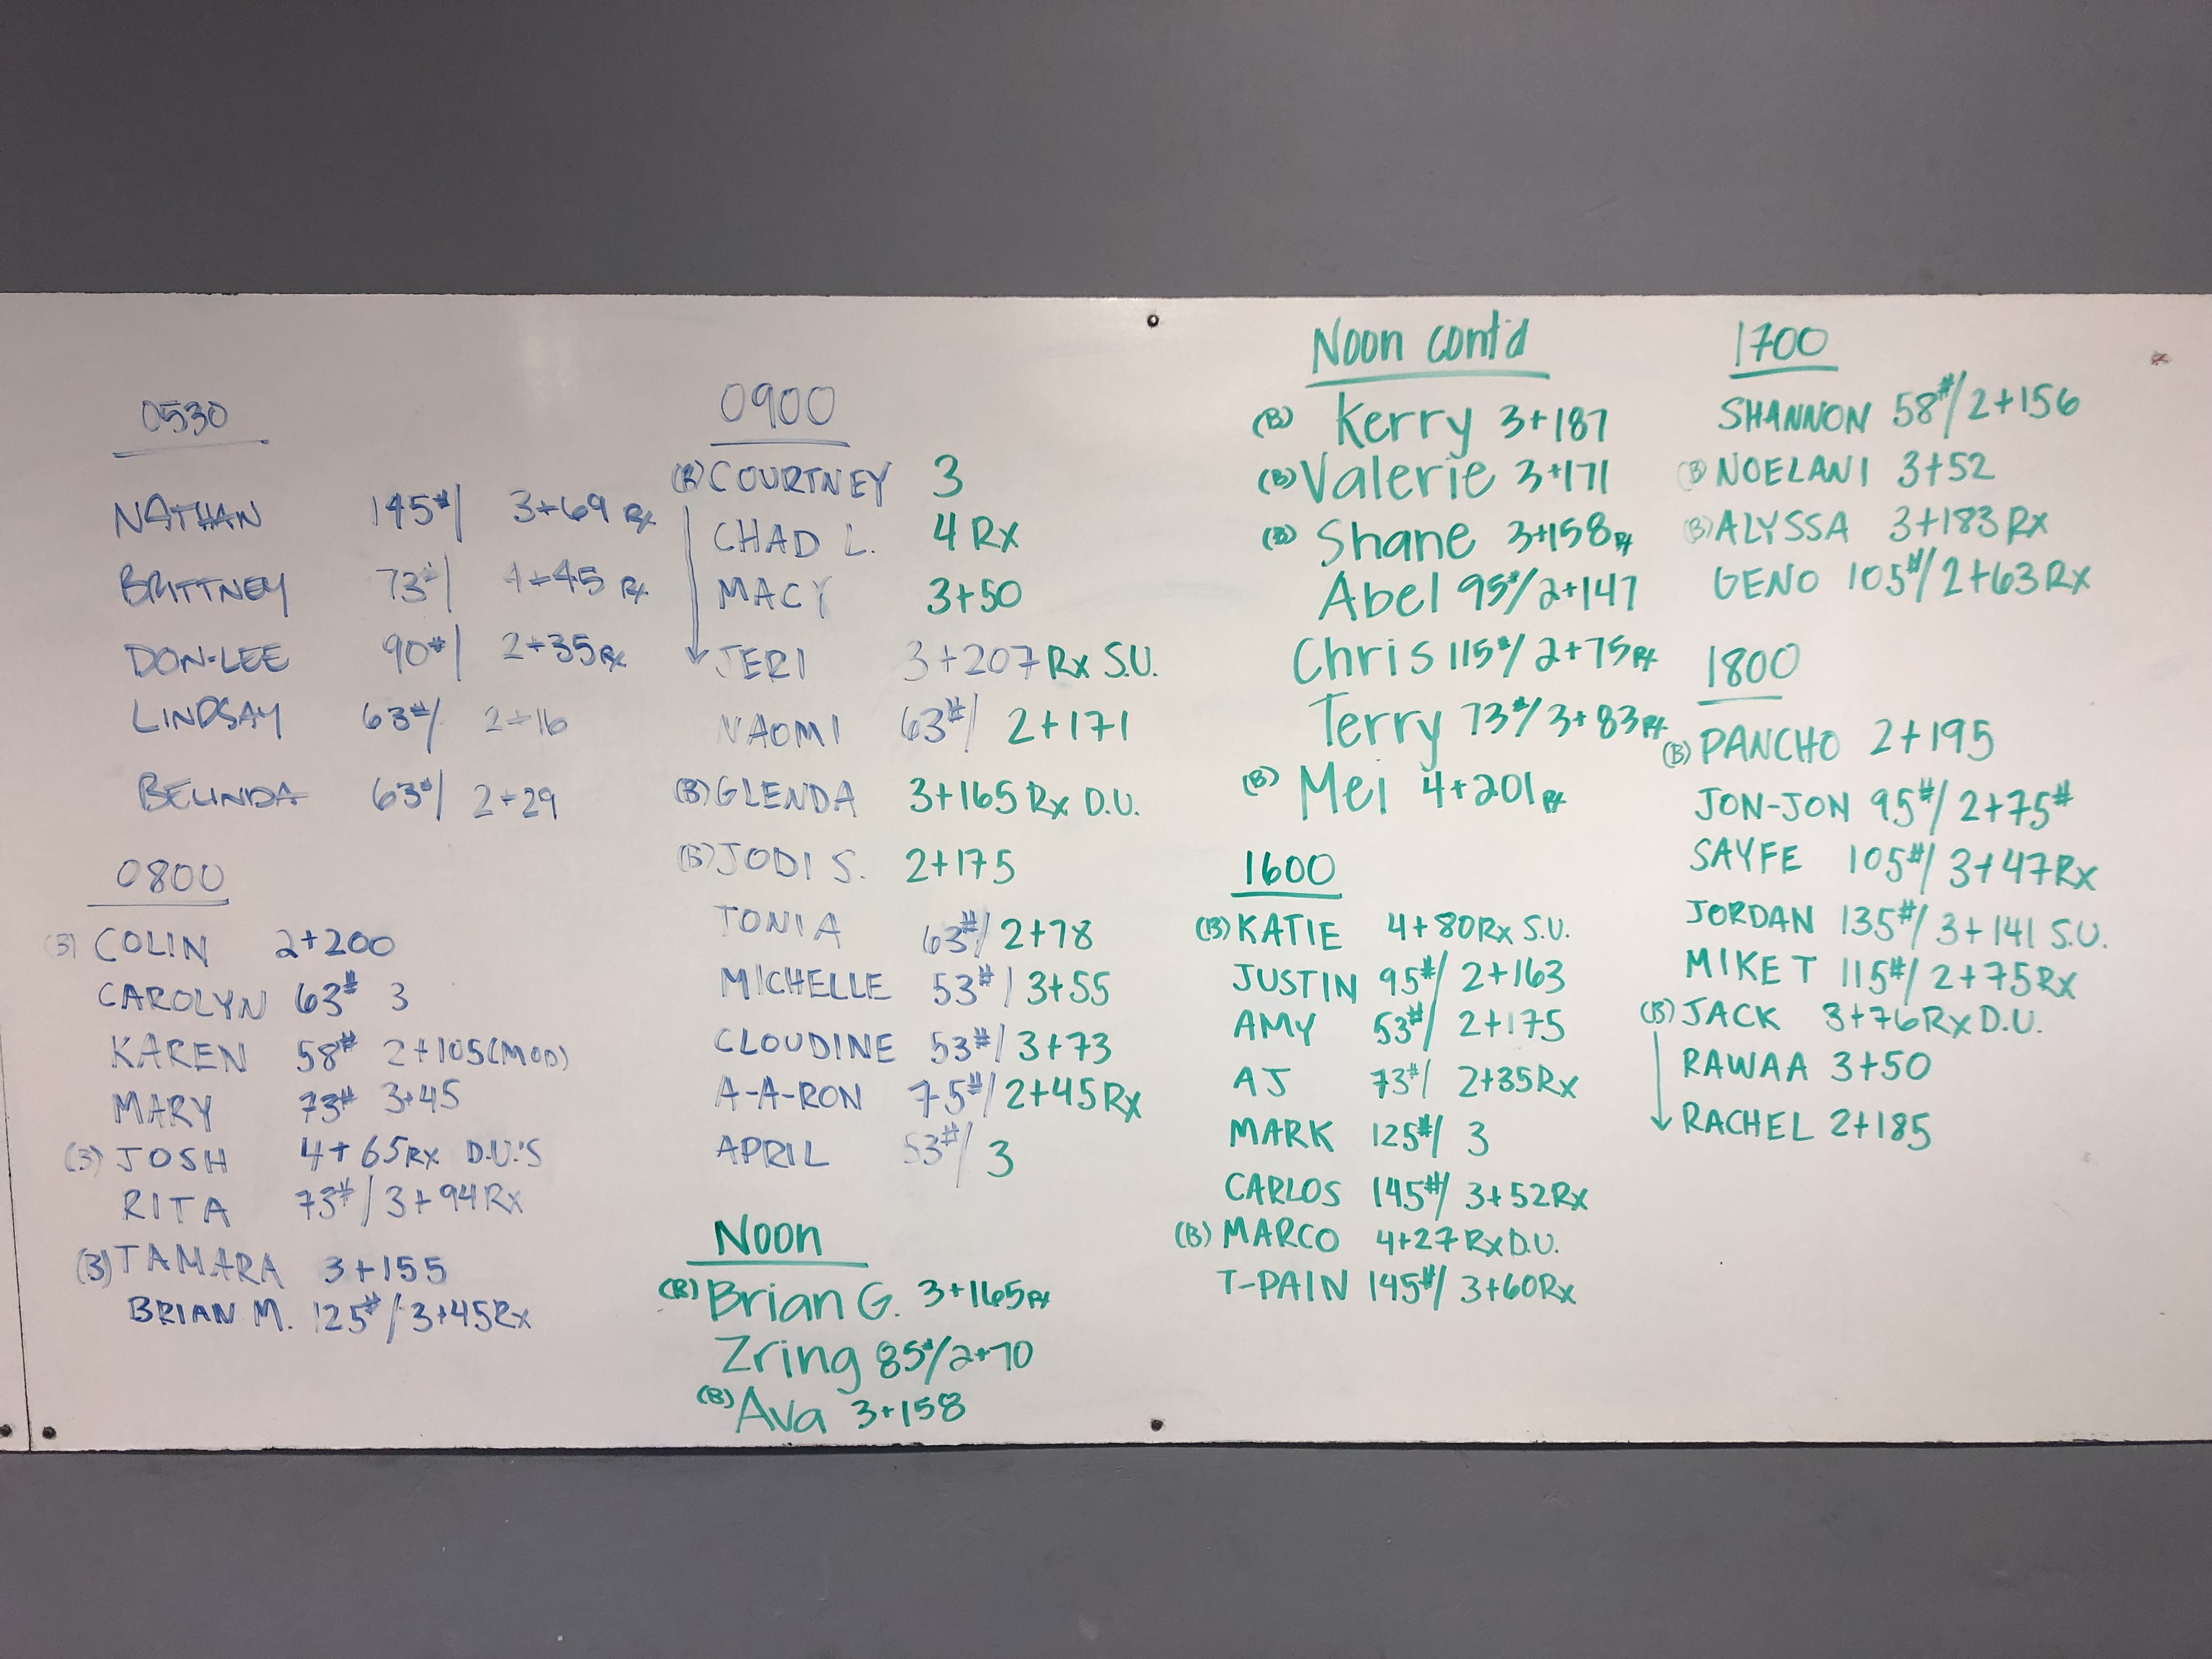 0530
NATHAN 145#/ 3+69 Rx
BRITTNEY 73#/ 4+45 Rx
DON-LEE 90#/ 2+35 Rx
LINDSAY 63#/ 2+16
BELINDA 63#/ 2+29
0800
(B) COLIN 2+200
CAROLYN 63# 3
KAREN 58# 2+105(MOD)
MARY 73# 3+45
(B) JOSH 4+65Rx D.U.'S
RITA 73#/ 3+94Rx
(B) TAMARA 3+155
BRIAN M. 125#/3+45Rx
0900
(B) COURTNEY 3
CHAD L. 4 Rx
MACY 3+50
JERI 3+207 Rx S.U.
NAOMI 63#/ 2+171
(B) GLENDA 3+165 Rx D.U.
(B) JODI S. 2+175
TONIA 63#/ 2+78
MICHELLE 53#/ 3+55
CLOUDINE 53#/ 3+73
A-A-RON 75#/ 2+45 Rx
APRIL 53#/ 3
Noon
(B) Brian G. 3+165Rx
Zring 85#/2+70
(B) Ava 3+158
Noon cont'd
(B) Kerry 3+187
(B) Valerie 3+171
(B) Shane 3+158Rx
Abel 95#/2+147
Chris 115#/2+75Rx
Terry 73#/3+83Rx
(B) Mei 4+201Rx
1600
(B) KATIE 4+80Rx S.U.
JUSTIN 95#/ 2+163
AMY 53#/ 2+175
AJ 73#/ 2+35Rx
MARK 125#/ 3
CARLOS 145#/ 3+52Rx
(B) MARCO 4+27 Rx D.U.
T-PAIN 145#/ 3+60Rx
1700
SHANNON 58#/2+156
(B) NOELANI 3+52
(B) ALYSSA 3+183 Rx
GENO 105#/2+63Rx
1800
(B) PANCHO 2+195
JON-JON 95#/2+75#
SAYFE 105#/ 3+47Rx
JORDAN 135#/3+141 S.U.
MIKE T 115#/2+75Rx
(B) JACK 3+76Rx D.U.
RAWAA 3+50
RACHEL 2+185